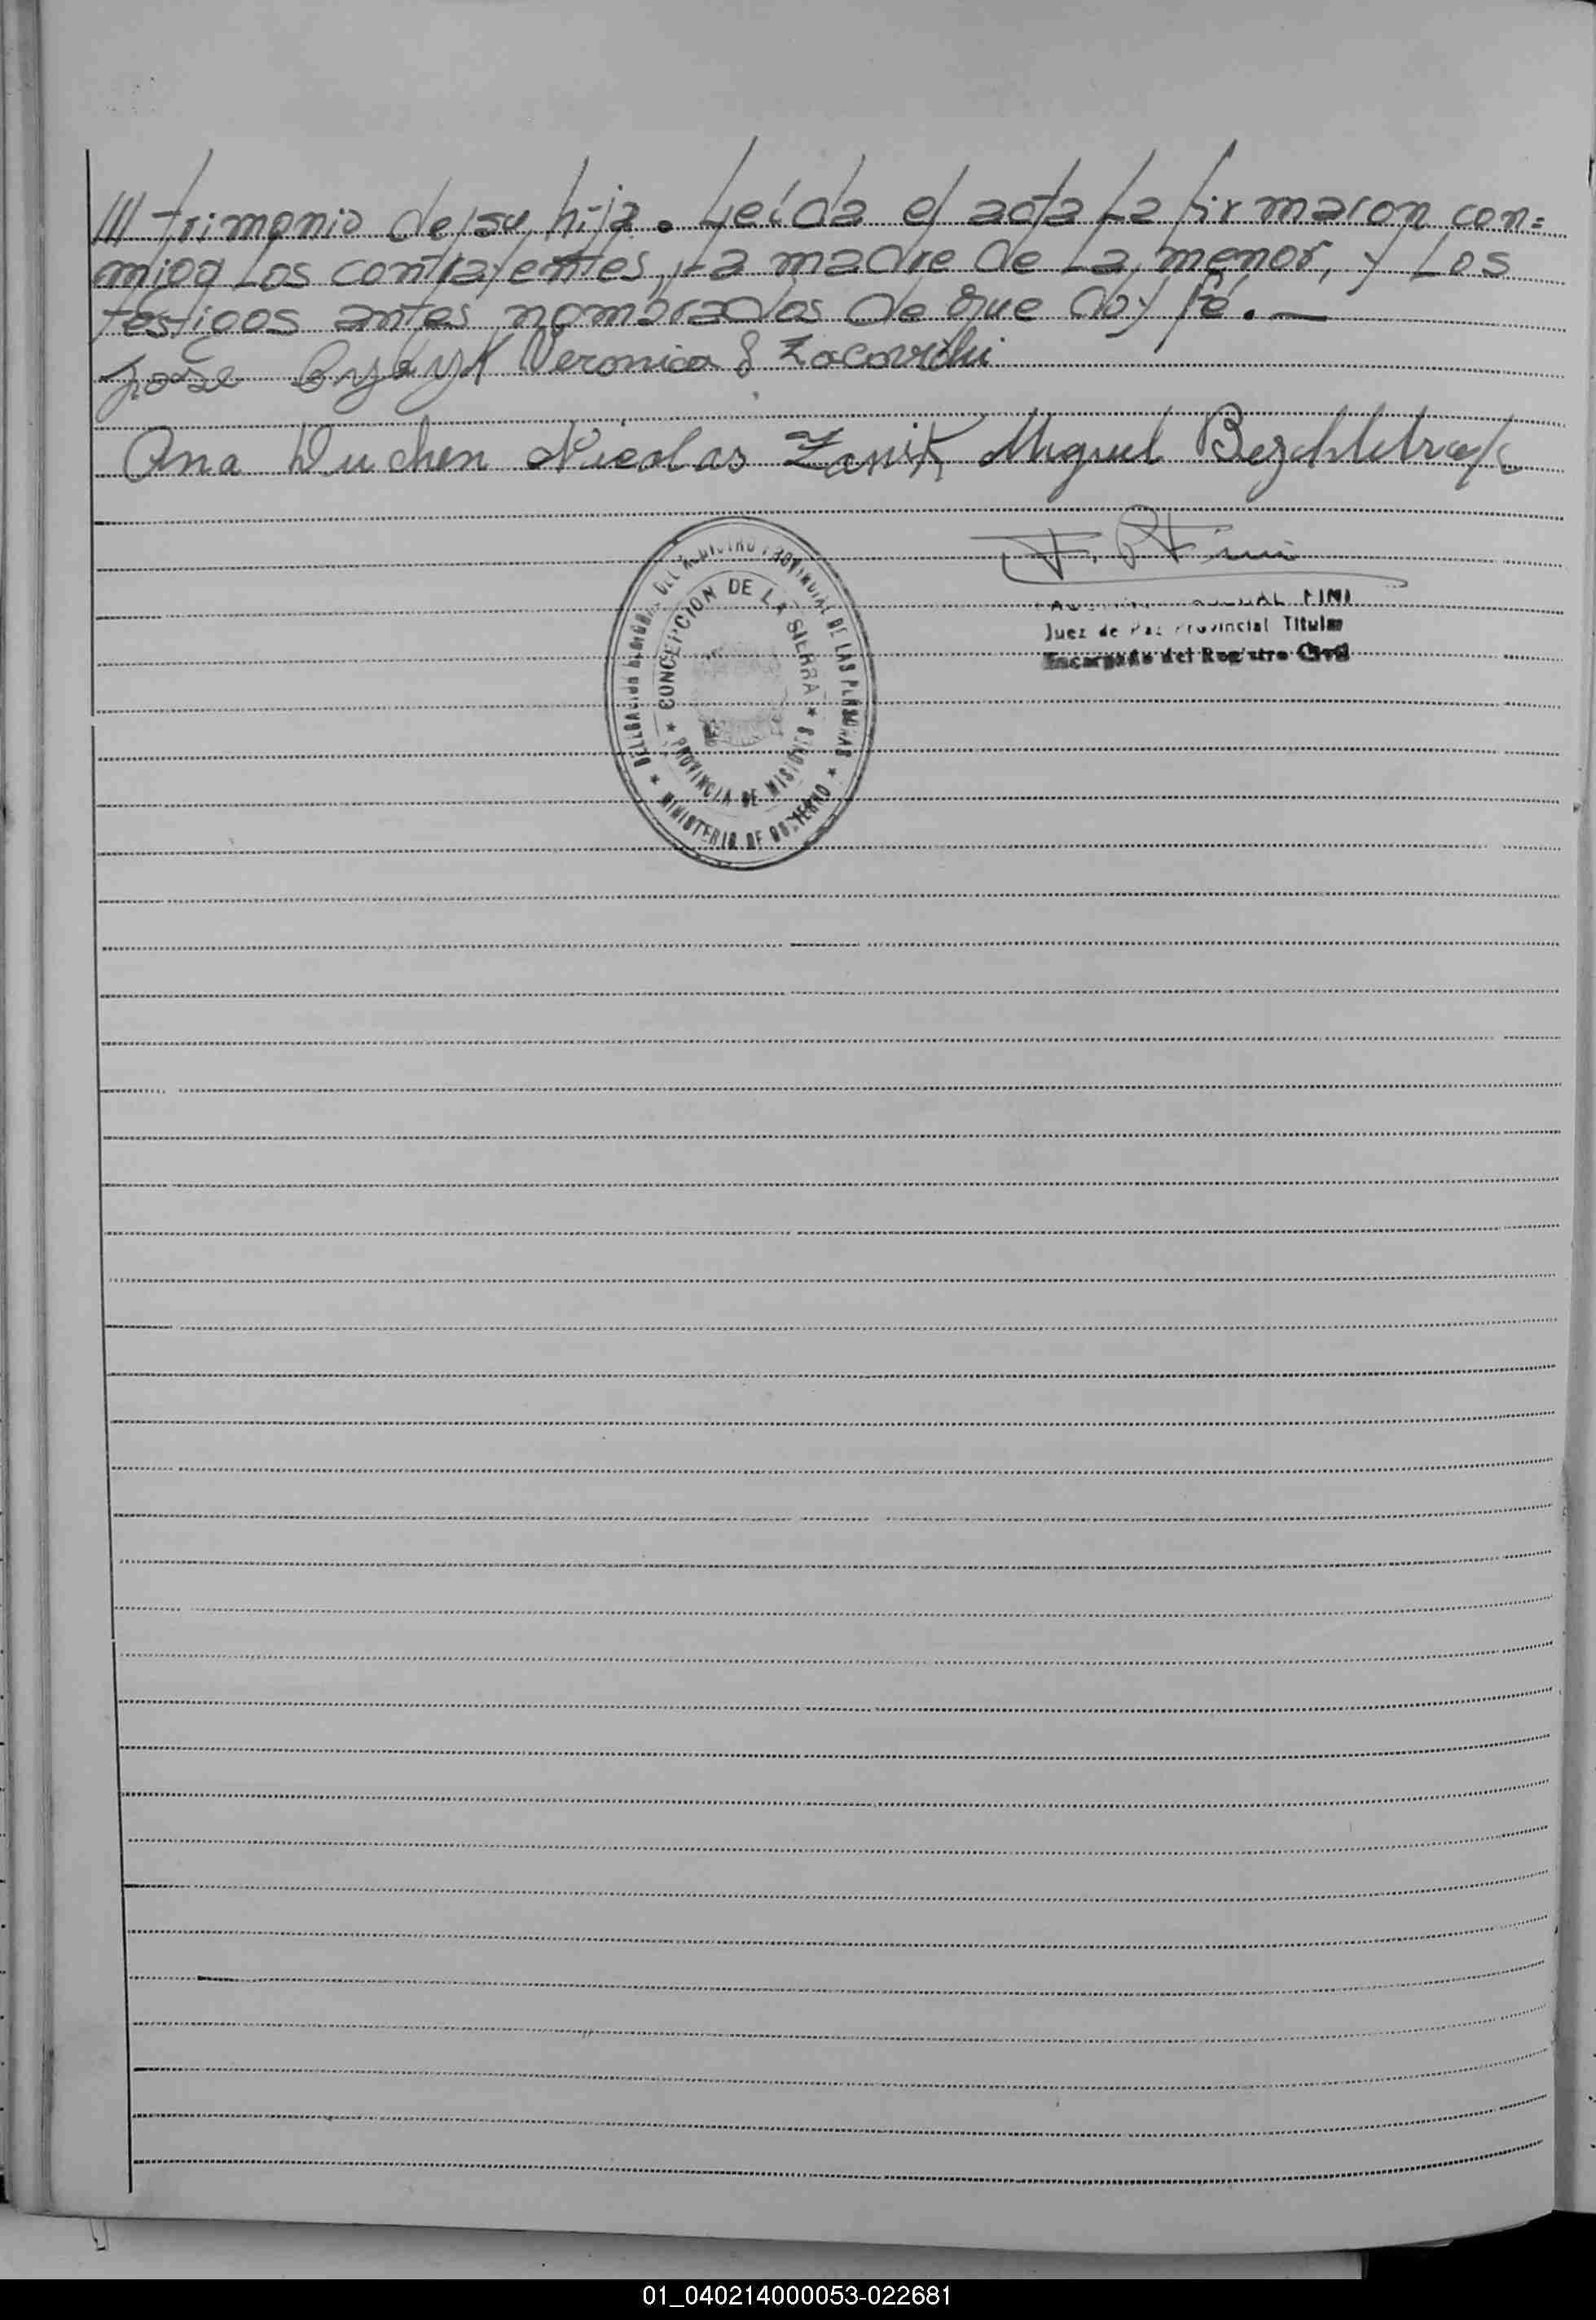 /// trimonio de su hija. Leída el acta la firmaron con=
migo los contrayentes, la madre de la menor, y los
testigos antes nombrados de que doy fé. —
José Veronica
Ana Duchen Nicolas Zanik Miguel
F. P. Fini
FINI
Juez de Paz Provincial Titular
Encargado del Registro Civil
DEL REGISTRO PROVINCIAL DE LAS PERSONAS
★ MINISTERIO DE GOBIERNO ★
CONCEPCION DE LA SIERRA
★ PROVINCIA DE MISIONES ★
01_040214000053-022681